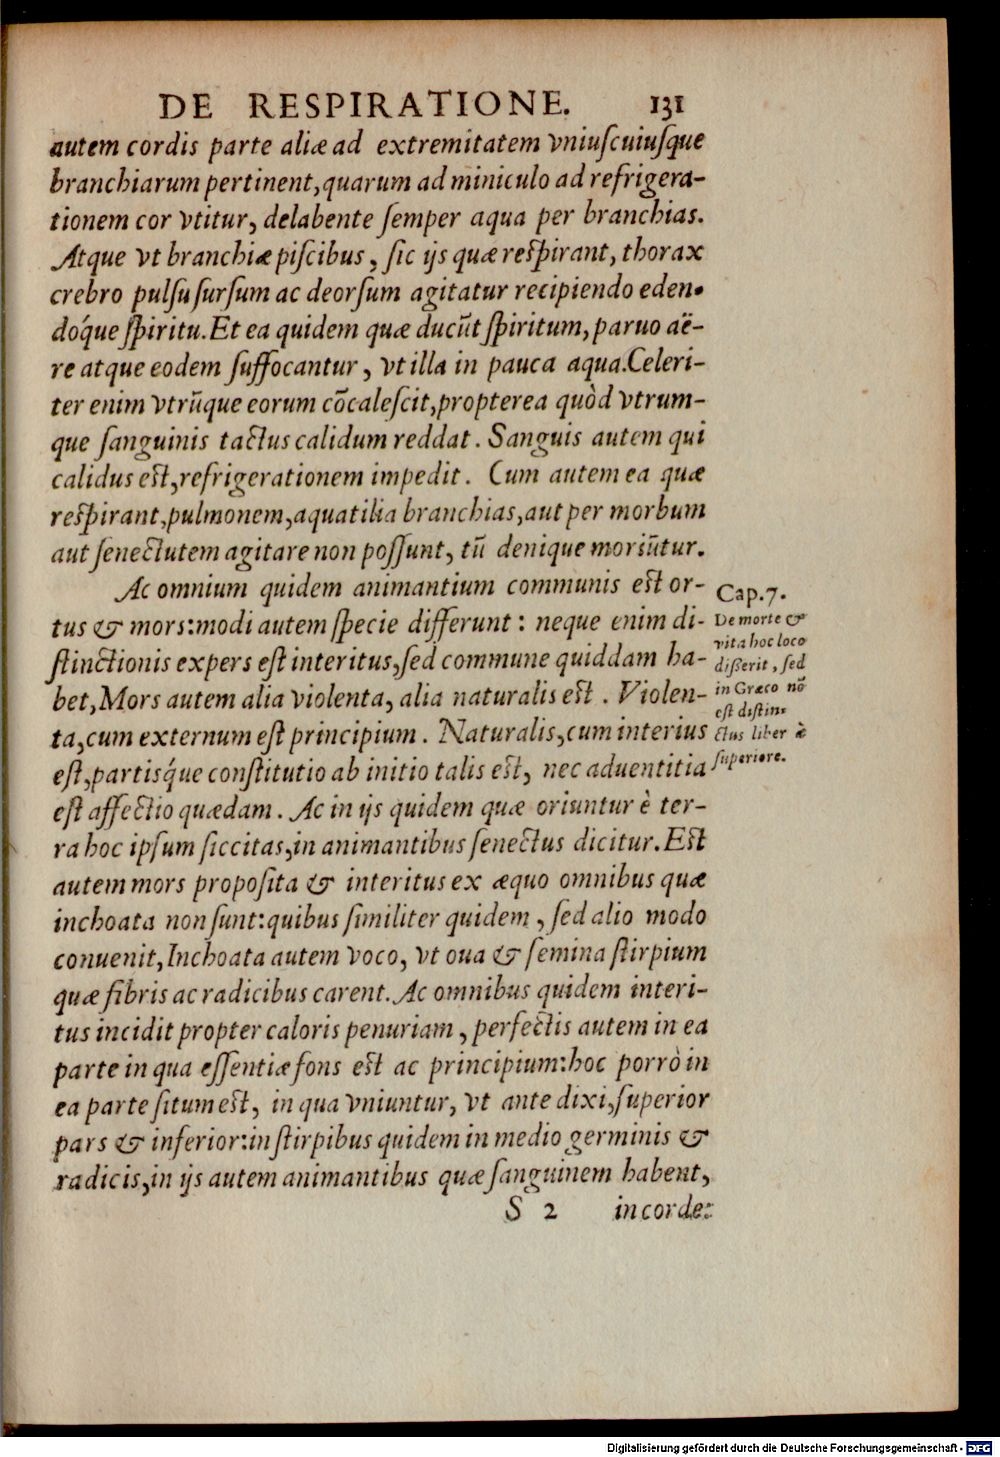 DE RESPIRATIONE. 131
autem cordis parte aliæ ad extremitatem vniuſcuiuſque
branchiarum pertinent, quarum ad miniculo ad refrigera-
tionem cor vtitur, delabente ſemper aqua per branchias.
Atque vt branchiæ piſcibus, ſic ijs quæ reſpirant, thorax
crebro pulſu ſurſum ac deorſum agitatur recipiendo eden-
dóque ſpiritu. Et ea quidem quæ ducũt ſpiritum, paruo aë-
re atque eodem ſuffocantur, vt illa in pauca aqua. Celeri-
ter enim vtrũque eorum cõcaleſcit, propterea quòd vtrum-
que ſanguinis tactus calidum reddat. Sanguis autem qui
calidus eſt, refrigerationem impedit. Cum autem ea quæ
reſpirant, pulmonem, aquatilia branchias, aut per morbum
aut ſenectutem agitare non poſſunt, tũ denique moriũtur.
Ac omnium quidem animantium communis eſt or-
tus & mors: modi autem ſpecie differunt: neque enim di-
ſtinctionis expers eſt interitus, ſed commune quiddam ha-
bet, Mors autem alia violenta, alia naturalis eſt. Violen-
ta, cum externum eſt principium. Naturalis, cum interius
eſt, partisq́ue conſtitutio ab initio talis eſt, nec aduentitia
eſt affectio quædam. Ac in ijs quidem quæ oriuntur è ter-
ra hoc ipſum ſiccitas, in animantibus ſenectus dicitur. Eſt
autem mors propoſita & interitus ex æquo omnibus quæ
inchoata non ſunt: quibus ſimiliter quidem, ſed alio modo
conuenit, Inchoata autem voco, vt oua & ſemina ſtirpium
quæ fibris ac radicibus carent. Ac omnibus quidem interi-
tus incidit propter caloris penuriam, perfectis autem in ea
parte in qua eſſentiæ fons eſt ac principium: hoc porrò in
ea parte ſitum eſt, in qua vniuntur, vt ante dixi, ſuperior
pars & inferior: in ſtirpibus quidem in medio germinis &
radicis, in ijs autem animantibus quæ ſanguinem habent,
S 2 in corde:
Cap. 7.
De morte &
vita hoc loco
diſſerit, ſed
in Græco nõ
eſt diſtin-
ctus liber à
ſuperiore.
Digitalisierung gefördert durch die Deutsche Forschungsgemeinschaft - DFG